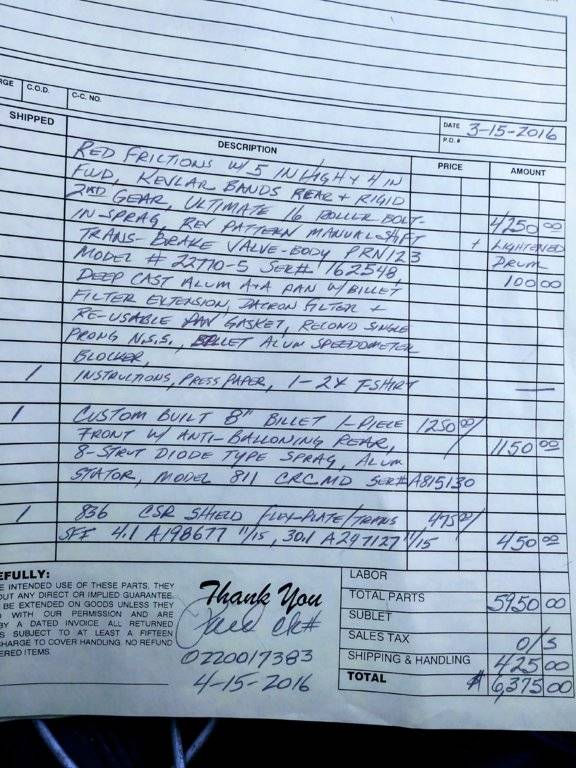 RGE C.O.D. C.C. NO.
SHIPPED
DATE 3-15-2016
P.O. #
DESCRIPTION PRICE AMOUNT
RED FRICTIONS W/5 IN HIGH + 4 IN
FWD, KEVLAR BANDS REAR + RIGID
2ND GEAR, ULTIMATE 16 ROLLER BOLT- 4250 00
IN-SPRAG, REV PATTERN MANUAL SHFT + LIGHTENED
TRANS-BRAKE VALVE-BODY PRN123 DRUM
MODEL # 22710-5 SER# 162548, 100 00
DEEP CAST ALUM A+A PAN W/BILLET
FILTER EXTENSION, DACRON FILTER +
RE-USABLE PAN GASKET, RECOND SINGLE
PRONG N.S.S., BILLET ALUM SPEEDOMETER
BLOCKER,
1 INSTRUCTIONS, PRESS PAPER, 1-2X T-SHIRT —
1 CUSTOM BUILT 8" BILLET 1-PIECE 1250 00/
FRONT W/ ANTI-BALLONING REAR, 1150 00
8-STRUT DIODE TYPE SPRAG, ALUM
STATOR, MODEL 811 CRCMD SER# A815130
1 836 CSR SHIELD /FLEX-PLATE/TRANS 475 00/
SFI 4.1 A198677 11/15, 30.1 A247127 11/15 450 00
EFULLY:
E INTENDED USE OF THESE PARTS. THEY
OUT ANY DIRECT OR IMPLIED GUARANTEE.
BE EXTENDED ON GOODS UNLESS THEY
D WITH OUR PERMISSION AND ARE
BY A DATED INVOICE ALL RETURNED
S SUBJECT TO AT LEAST A FIFTEEN
CHARGE TO COVER HANDLING. NO REFUND
ERED ITEMS.
Thank You
Paid ck#
0220017383
4-15-2016
LABOR
TOTAL PARTS 5950 00
SUBLET
SALES TAX O/S
SHIPPING & HANDLING 425 00
TOTAL $ 6,375 00